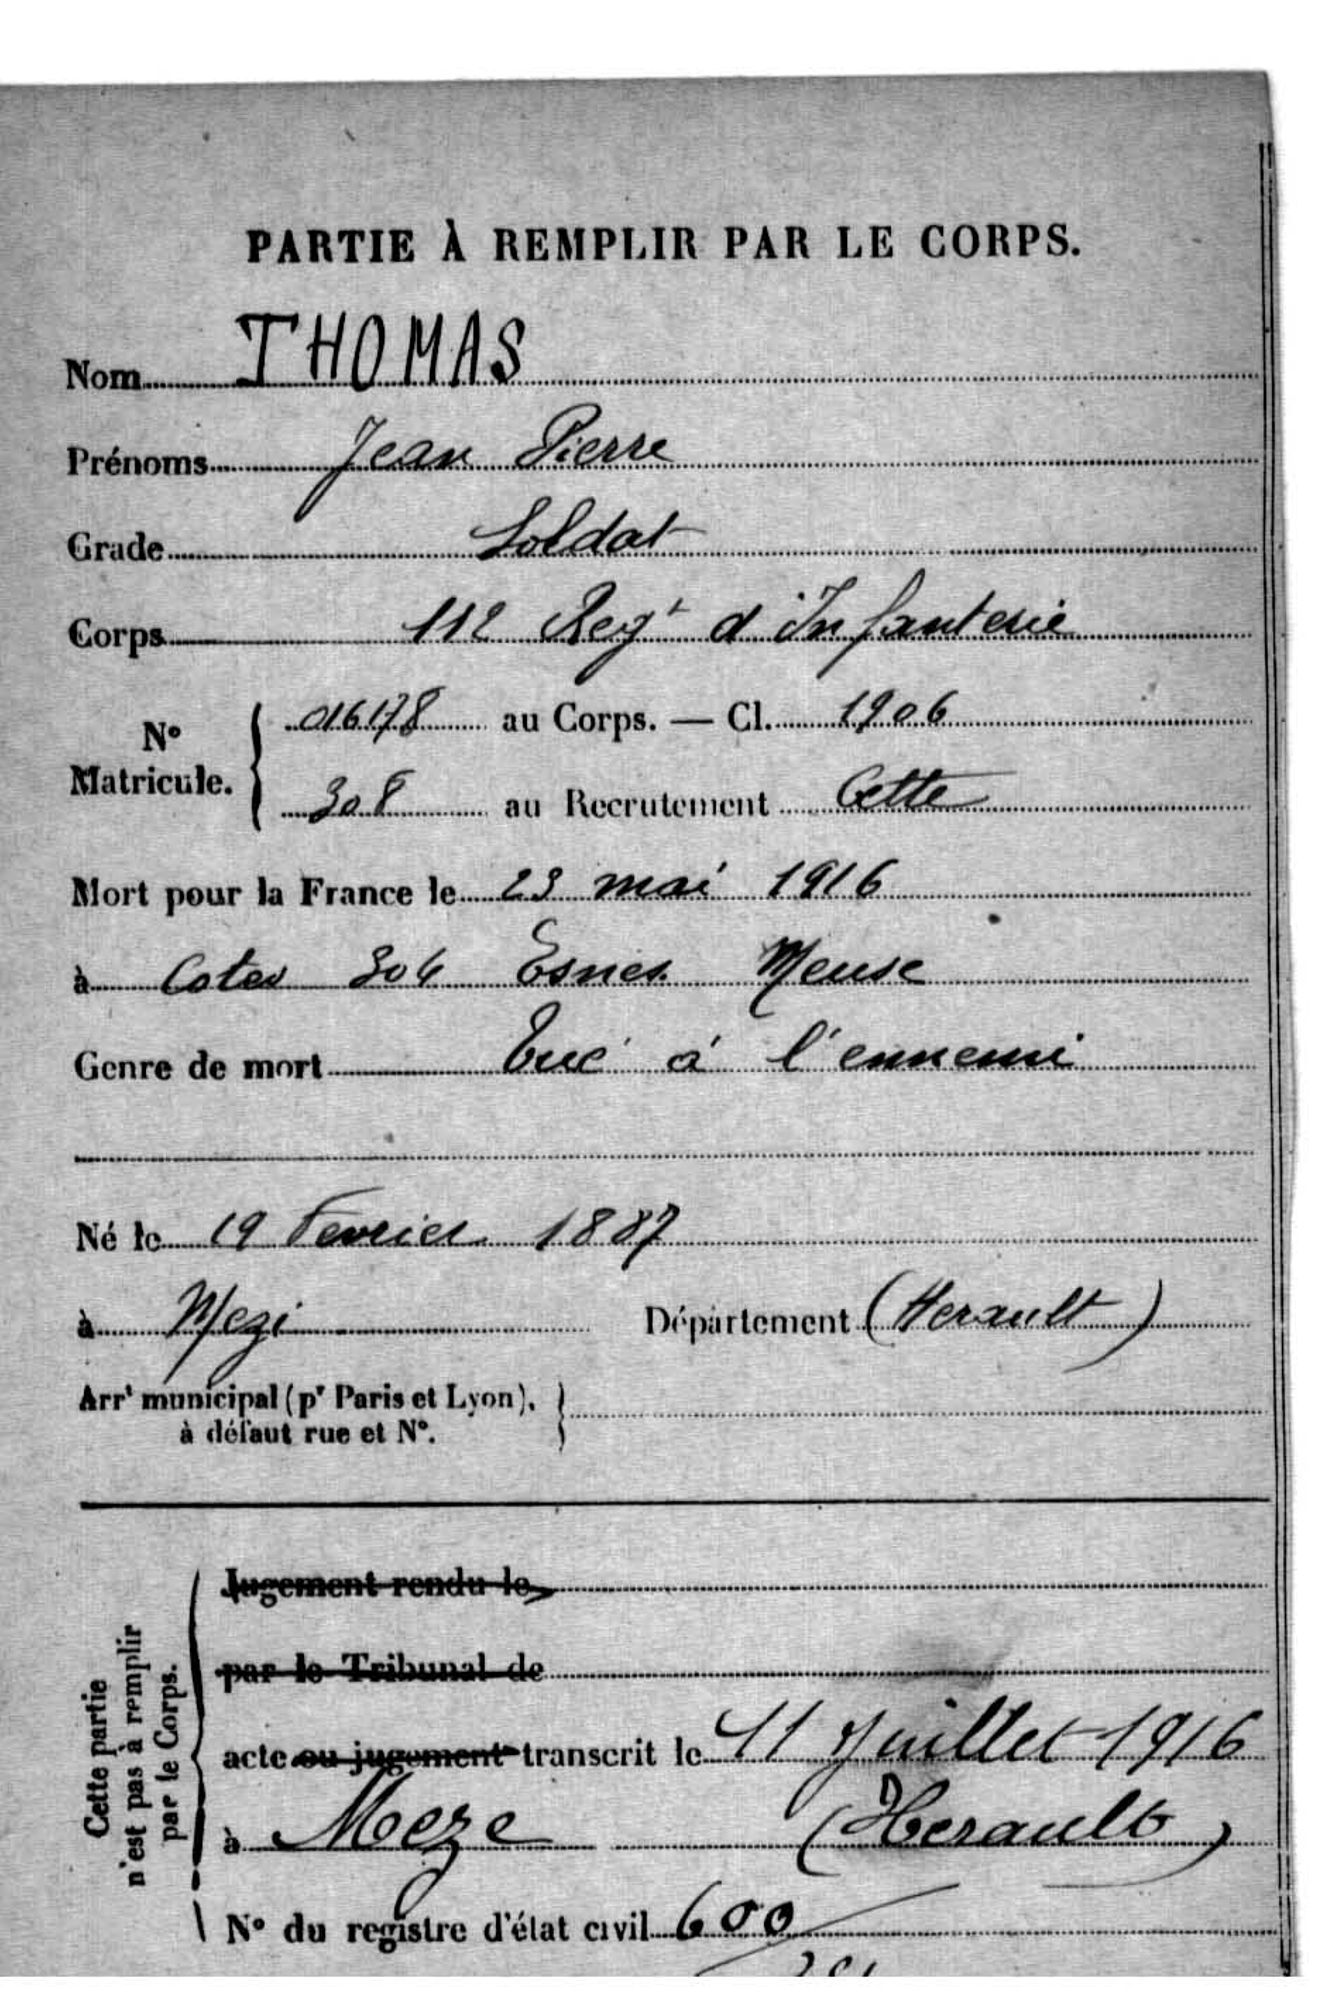 PARTIE À REMPLIR PAR LE CORPS.
Nom THOMAS
Prénoms Jean Pierre
Grade Soldat
Corps 112 Regt d'Infanterie
N° Matricule. 016178 au Corps. — Cl. 1906
308 au Recrutement Cette
Mort pour la France le 23 mai 1916
à Cotes 304 Esnes Meuse
Genre de mort Tué à l'ennemi
Né le 19 Fevrier 1887
à Mezi Département (Herault)
Arrt municipal (pr Paris et Lyon),
à défaut rue et N°.
Cette partie
n'est pas à remplir
par le Corps.
Jugement rendu le
par le Tribunal de
acte ou jugement transcrit le 11 Juillet 1916
à Meze (Herault)
N° du registre d'état civil 600